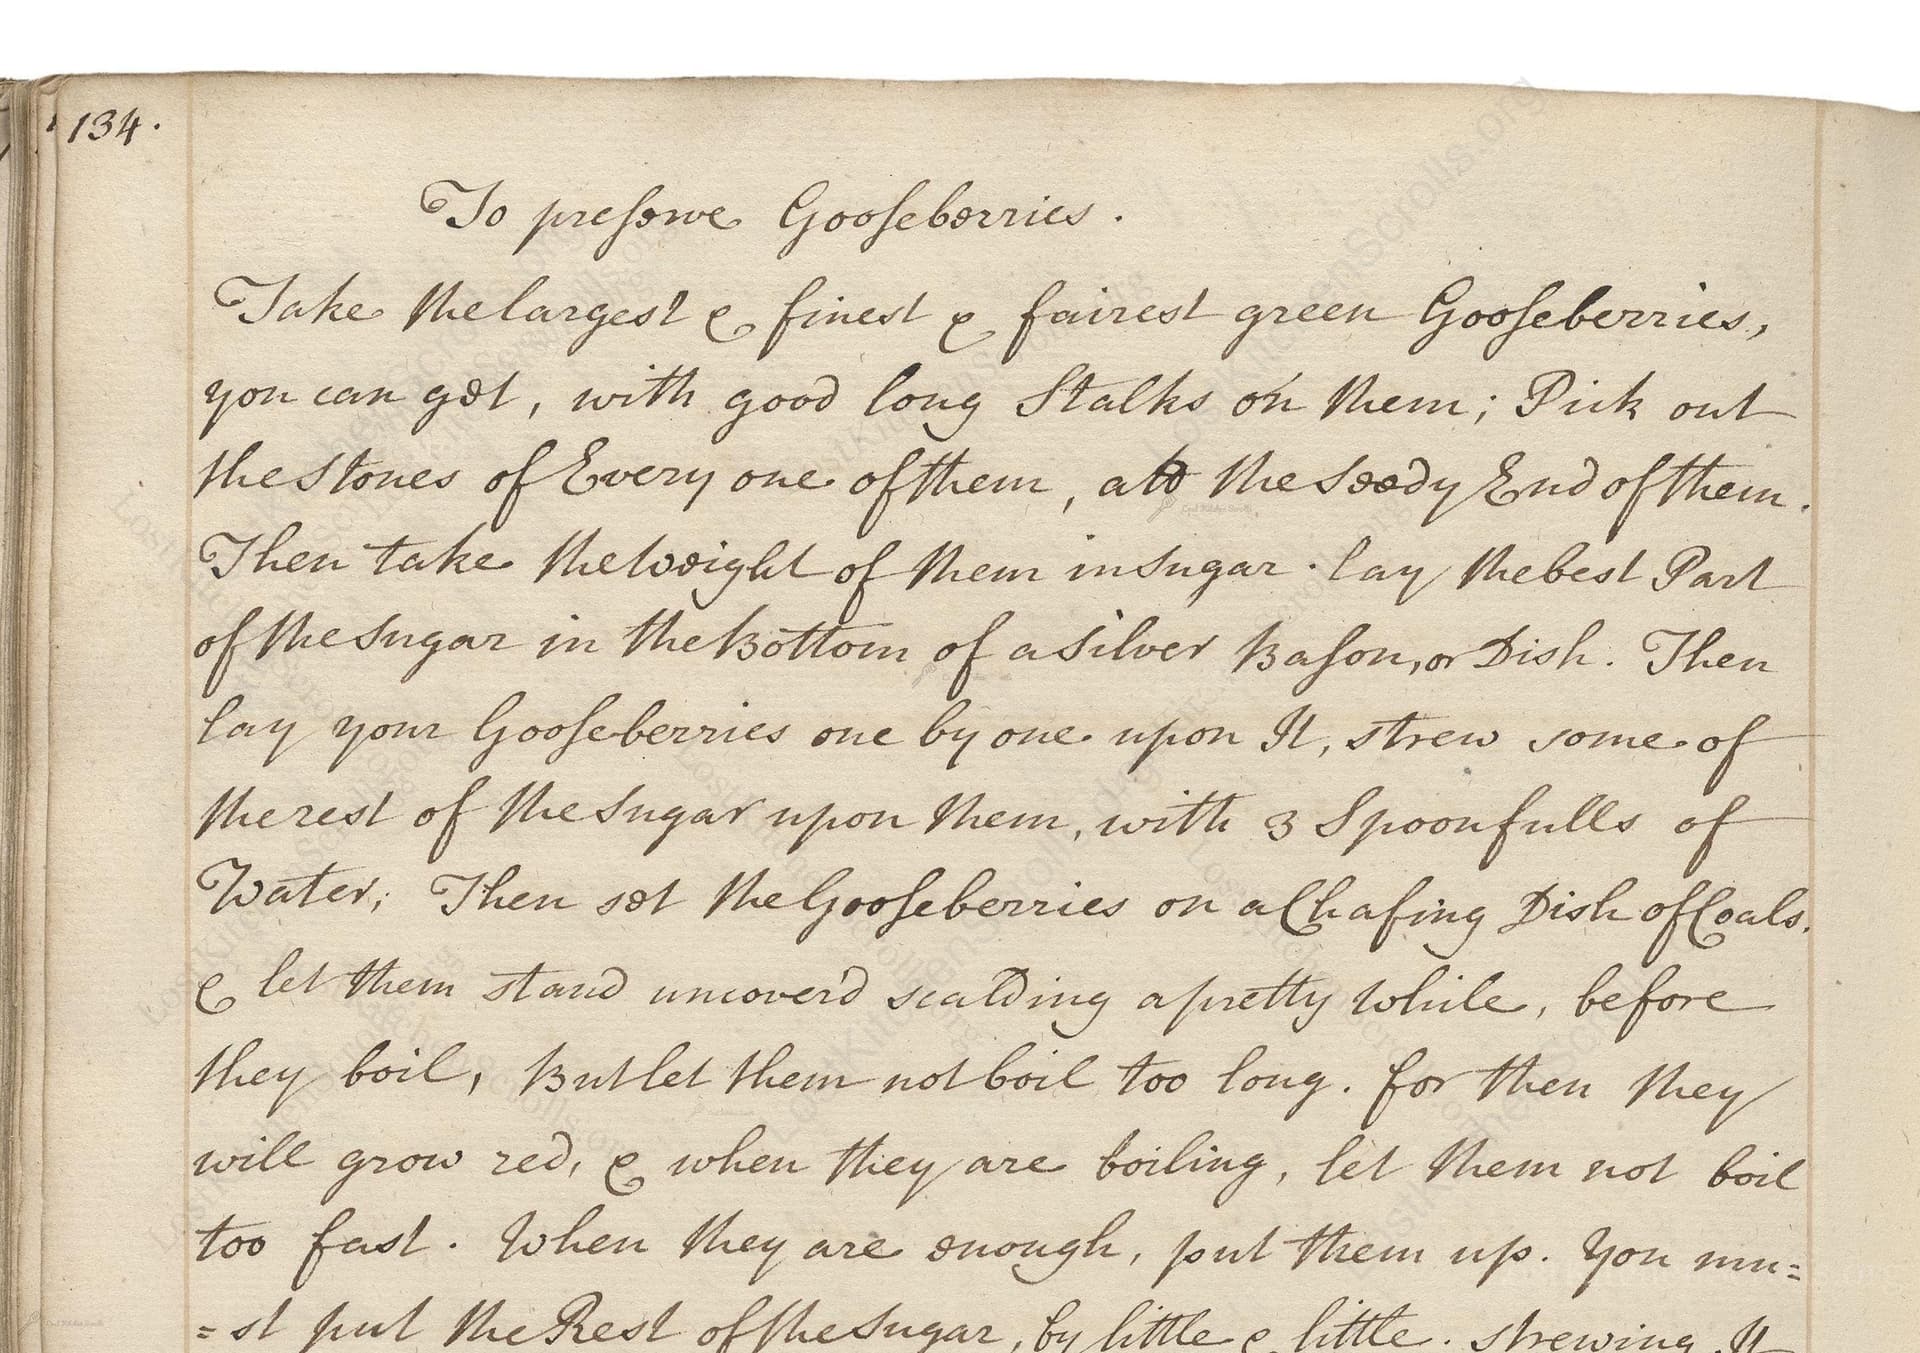 134.
To preserve Gooseberries.
Take the largest & finest & fairest green Gooseberries,
you can get, with good long Stalks on them; Pick out
the Stones of Every one of them, att the Seedy End of them.
Then take the Weight of them in Sugar. lay the best Part
of the Sugar in the Bottom of a Silver Bason, or Dish. Then
lay your Gooseberries one by one upon It, strew some of
the rest of the Sugar upon them, with 3 Spoonfulls of
Water; Then set the Gooseberries on a Chafing Dish of Coals.
& let them stand uncover'd scalding a pretty While, before
they boil, But let them not boil too long. for then they
will grow red, & when they are boiling, let them not boil
too fast. When they are enough, put them up. You mu=
=st put the Rest of the Sugar, by little & little. strewing It